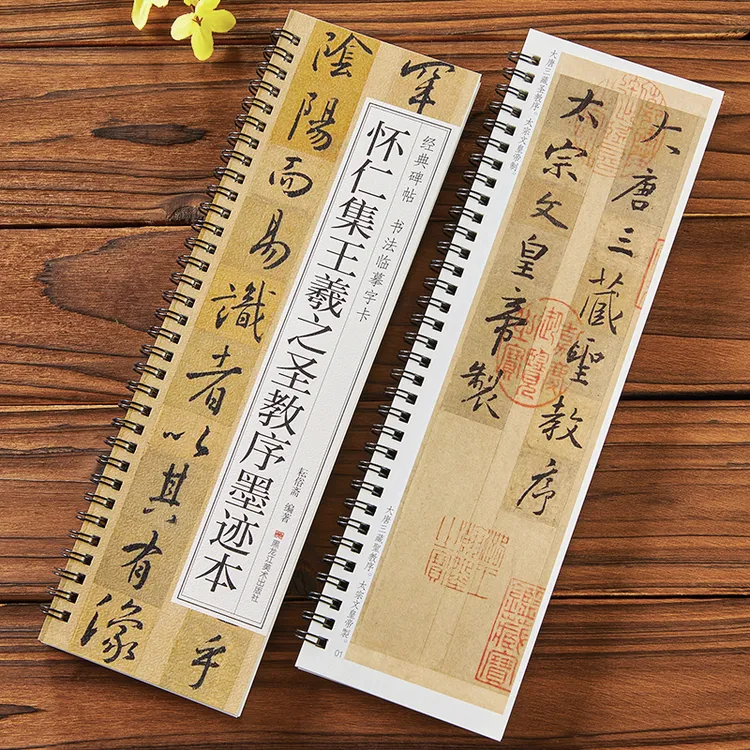 罕
乎
陰陽而易識者以其有像
经典碑帖 书法临摹字卡
怀仁集王羲之圣教序墨迹本
耘俗斋 编著
黑龙江美术出版社
大唐三藏聖教序
太宗文皇帝製
大唐三藏圣教序。太宗文皇帝制。
大唐三藏聖教序。太宗文皇帝製。
01